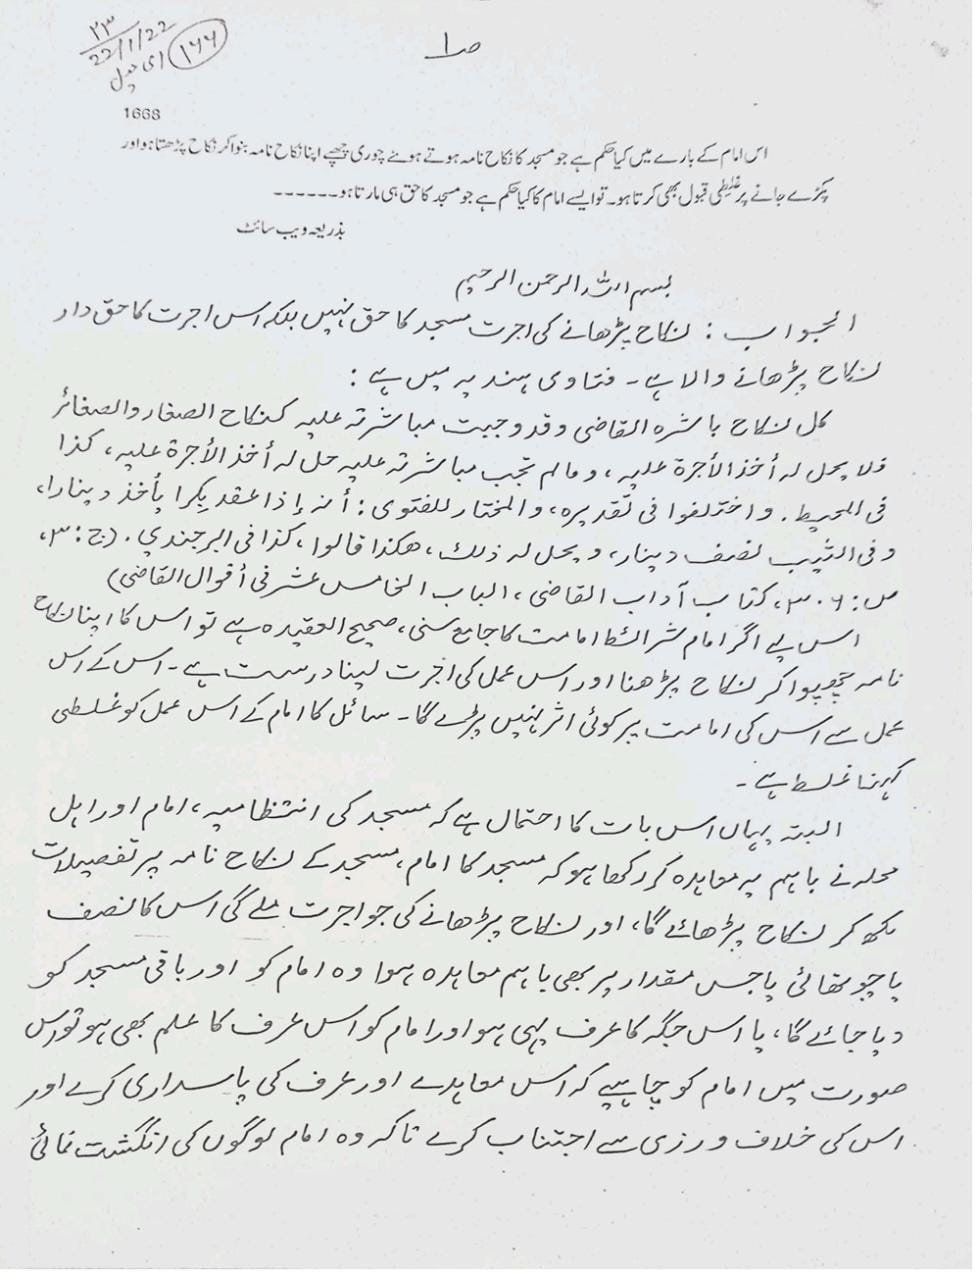 ۲۳
22/1/22
ای میل
۱۶۶
صـ۱
1668
اس امام کے بارے میں کیا حکم ہے جو مسجد کا نکاح نامہ ہوتے ہوئے چوری چھپے اپنا نکاح نامہ بنوا کر نکاح پڑھتا ہو اور
پکڑے جانے پر غلطی قبول بھی کرتا ہو۔ تو ایسے امام کا کیا حکم ہے جو مسجد کا حق ہی مارتا ہو۔۔۔۔۔۔
بذریعہ ویب سائٹ
بسم اللہ الرحمن الرحیم
الجواب : نکاح پڑھانے کی اجرت مسجد کا حق نہیں بلکہ اس اجرت کا حق دار
نکاح پڑھانے والا ہے۔ فتاوی ہندیہ میں ہے :
کل نکاح باشره القاضی وقد وجبت مباشرتہ علیہ کنکاح الصغار والصغائر
فلا یحل لہ أخذ الأجرة علیہ، ومالم تجب مباشرتہ علیہ حل لہ أخذ الأجرة علیہ، کذا
فی المحیط. واختلفوا فی تقدیرہ، والمختار للفتوی : أنہ إذا عقد بکرا یأخذ دینارا،
وفی الثیب نصف دینار، ویحل لہ ذلك، ھکذا قالوا، کذا فی البرجندی. (ج:۳،
ص:۳۰۶، کتاب آداب القاضی، الباب الخامس عشر فی أقوال القاضی)
اس لیے اگر امام شرائط امامت کا جامع سنی، صحیح العقیدہ ہے تو اس کا اپنا نکاح
نامہ چھپوا کر نکاح پڑھنا اور اس عمل کی اجرت لینا درست ہے۔ اس کے اس
عمل سے اس کی امامت پر کوئی اثر نہیں پڑے گا۔ سائل کا امام کے اس عمل کو غلطی
کہنا غلط ہے۔
البتہ یہاں اس بات کا احتمال ہے کہ مسجد کی انتظامیہ، امام اور اہل
محلہ نے باہم یہ معاہدہ کر رکھا ہو کہ مسجد کا امام، مسجد کے نکاح نامہ پر تفصیلات
لکھ کر نکاح پڑھائے گا، اور نکاح پڑھانے کی جو اجرت ملے گی اس کا نصف
یا چوتھائی یا جس مقدار پر بھی باہم معاہدہ ہوا وہ امام کو اور باقی مسجد کو
دیا جائے گا، یا اس جگہ کا عرف یہی ہو اور امام کو اس عرف کا علم بھی ہو تو اس
صورت میں امام کو چاہیے کہ اس معاہدے اور عرف کی پاسداری کرے اور
اس کی خلاف ورزی سے اجتناب کرے تاکہ وہ امام لوگوں کی انگشت نمائی